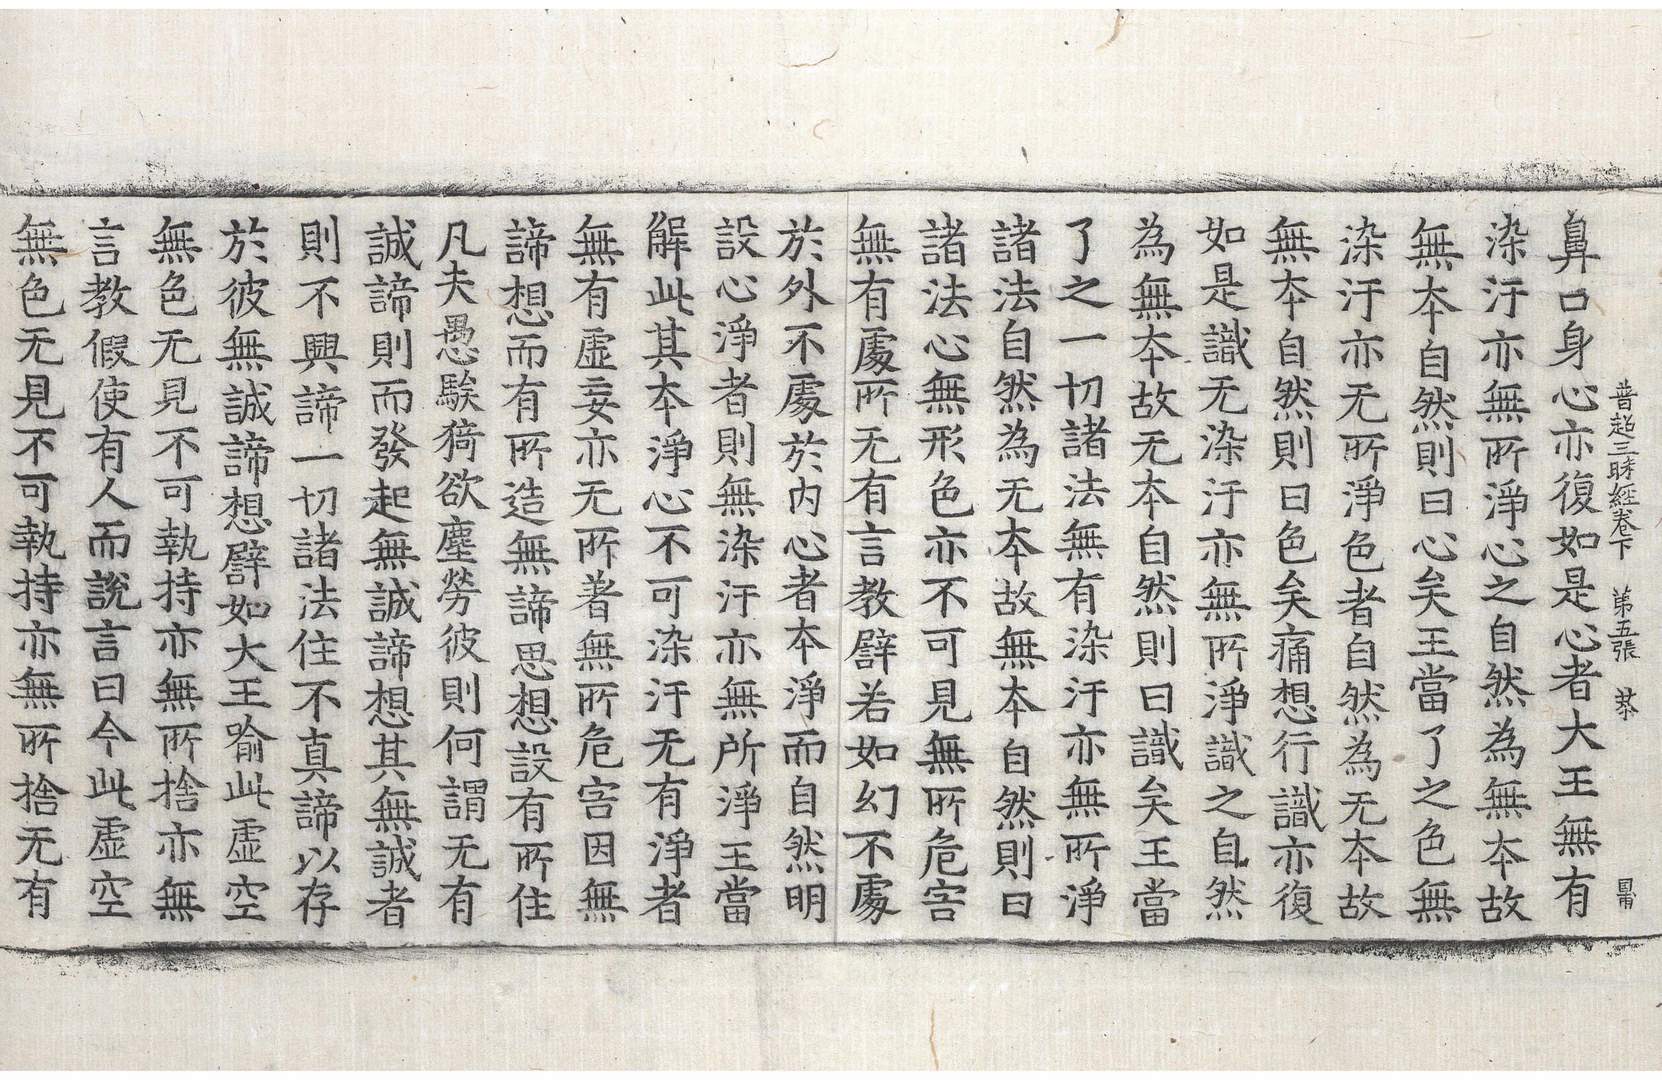 普超三昧經卷下 第五張 恭
鼻口身心亦復如是心者大王無有
染汙亦無所淨心之自然為無本故
無本自然則曰心矣王當了之色無
染汙亦无所淨色者自然為无本故
無本自然則曰色矣痛想行識亦復
如是識无染汙亦無所淨識之自然
為無本故无本自然則曰識矣王當
了之一切諸法無有染汙亦無所淨
諸法自然為无本故無本自然則曰
諸法心無形色亦不可見無所危害
無有處所无有言教譬若如幻不處
於外不處於内心者本淨而自然明
設心淨者則無染汙亦無所淨王當
解此其本淨心不可染汙无有淨者
無有虛妄亦无所著無所危害因無
諦想而有所造無諦思想設有所住
凡夫愚騃猗欲塵勞彼則何謂无有
誠諦則而發起無誠諦想其無誠者
則不興諦一切諸法住不真諦以存
於彼無誠諦想譬如大王喻此虛空
無色无見不可執持亦無所捨亦無
言教假使有人而說言曰今此虛空
無色无見不可執持亦無所捨无有